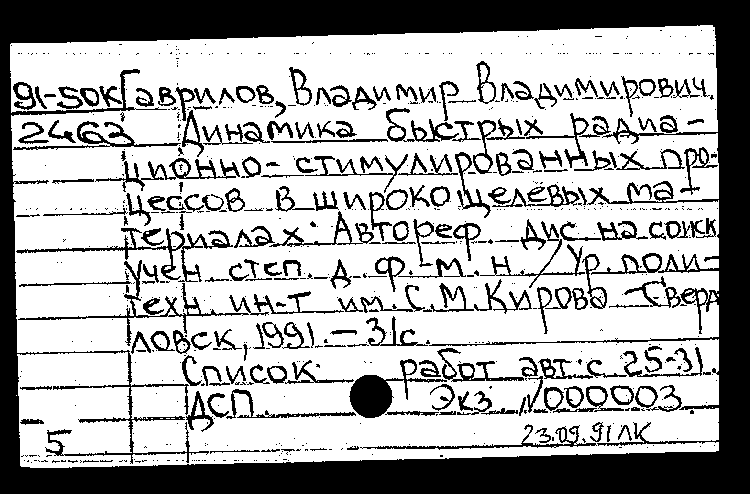 91-50К Гаврилов, Владимир Владимирович.
2463 Динамика быстрых радиа-
ционно-стимулированных про-
цессов в широкощелевых ма-
териалах: Автореф. дис. на соиск.
учен. степ. д. ф.-м. н. / Ур. поли-
техн. ин-т им. С.М. Кирова - Сверд
ловск, 1991. - 31с.
Список работ авт.: с 25-31.
ДСП. Экз. №000003.
5 23.09.91 ЛК